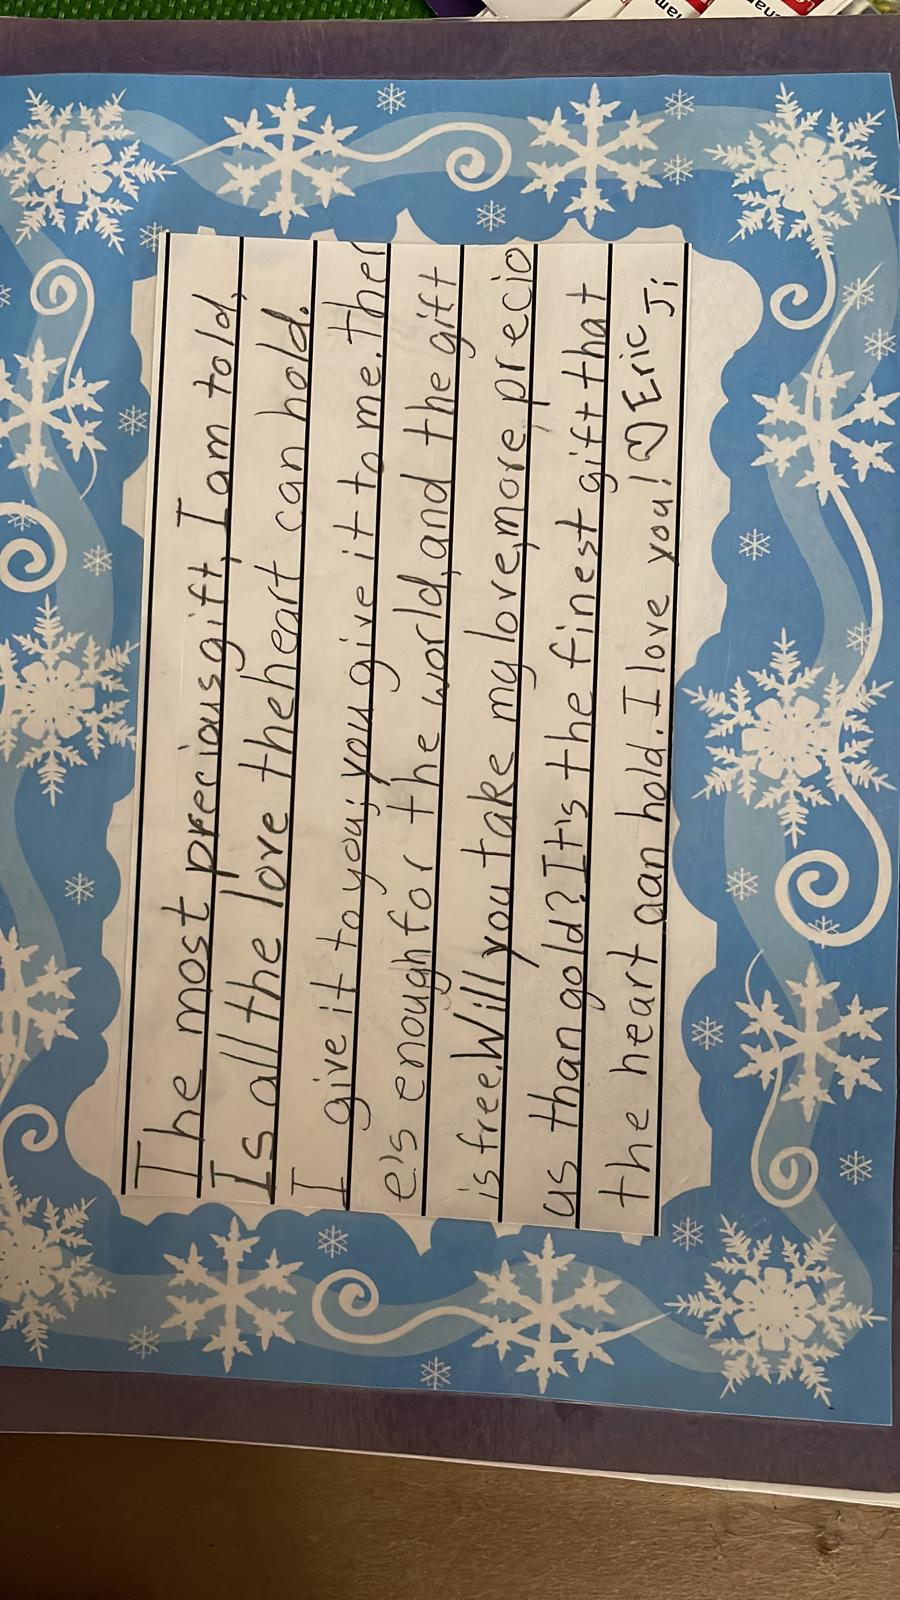 The most precious gift, I am told,
Is all the love the heart can hold.
I give it to you; you give it to me. Ther
e's enough for the world, and the gift
is free. Will you take my love, more precio
us than gold? It's the finest gift that
the heart aan hold. I love you! ♡ Eric Ji